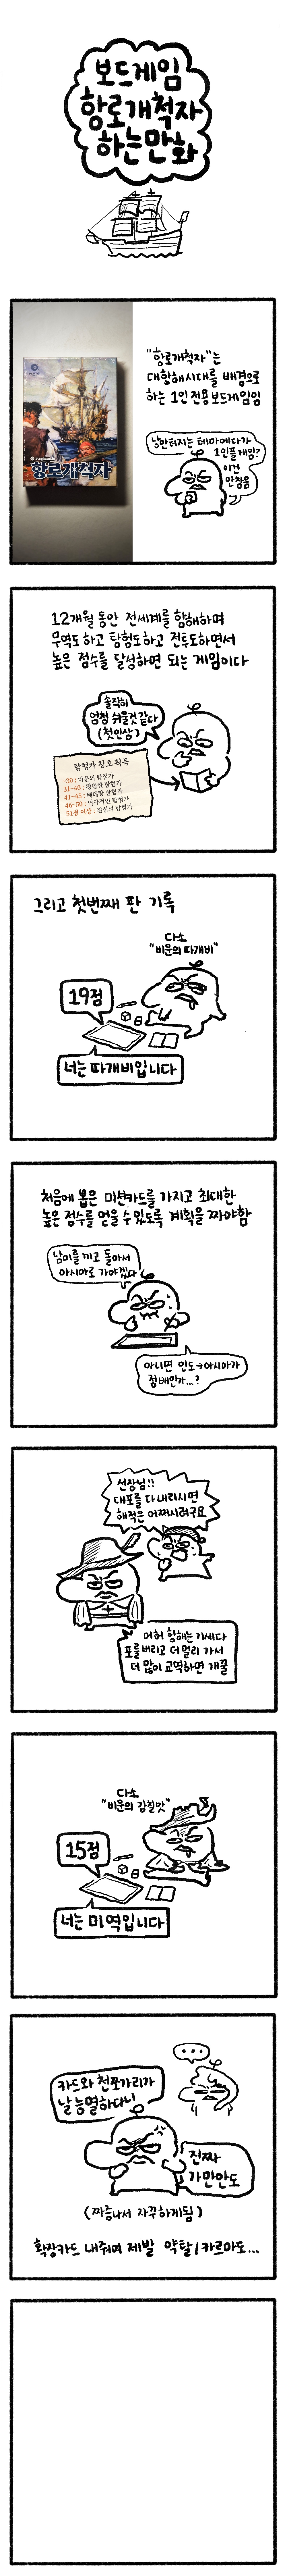 보드게임
항로개척자
하는만화
항로개척자
"항로개척자"는
대항해시대를 배경으로
하는 1인 전용 보드게임임
낭만터지는 테마에다가
1인플 게임?
이건
안참음
12개월 동안 전세계를 항해하며
무역도 하고 탐험도하고 전투도하면서
높은 점수를 달성하면 되는 게임이다
솔직히
엄청 쉬울것 같다
(첫인상)
탐험가 칭호 획득
~30 : 비운의 탐험가
31~40 : 평범한 탐험가
41~45 : 베테랑 탐험가
46~50 : 역사적인 탐험가
51점 이상 : 전설의 탐험가
그리고 첫번째 판 기록
다소
"비운의 따개비"
19점
너는 따개비입니다
처음에 뽑은 미션카드를 가지고 최대한
높은 점수를 얻을 수 있도록 계획을 짜야함
남미를 끼고 돌아서
아시아로 가야겠다
아니면 인도→아시아가
점배인가...?
선장님!!
대포를 다 내리시면
해적은 어쩌시려구요
어허 항해는 기세다
포를 버리고 더 멀리 가서
더 많이 교역하면 개꿀
다소
"비운의 감칠맛"
15점
너는 미역입니다
...
카드와 천쪼가리가
날 능멸하다니
진짜
가만안도
(짜증나서 자꾸하게됨)
확장카드 내주며 제발 약탈/카르마도...